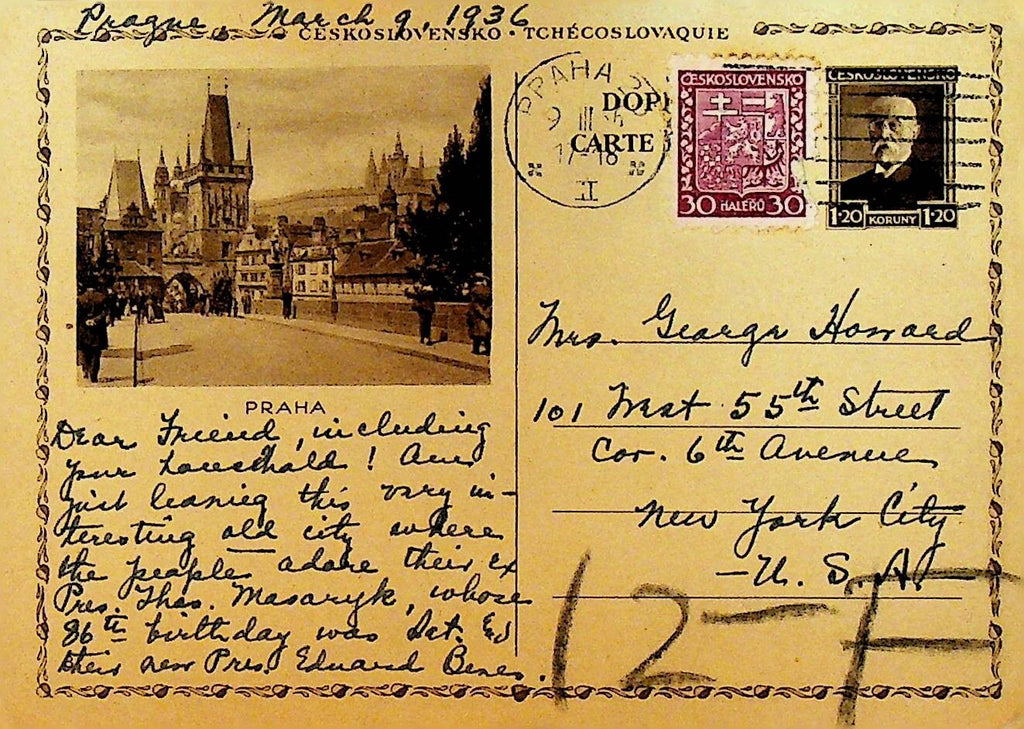 Prague, March 9, 1936
ČESKOSLOVENSKO · TCHÉCOSLOVAQUIE
PRAHA
9 III
17-18
I
DOPI
CARTE
ČESKOSLOVENSKO
30 HALÉŘŮ 30
ČESKOSLOVENSKO
1·20 KORUNY 1·20
PRAHA
Dear Friend, including
your household! Am
just leaving this very in-
teresting old city where
the people adore their Ex
Pres. Thos. Masaryk, whose
86th birthday was Sat. &
their new Pres. Eduard Benes.
Mrs. George Howard
101 West 55th Street
Cor. 6th Avenue
New York City
- U. S. A.
12-F